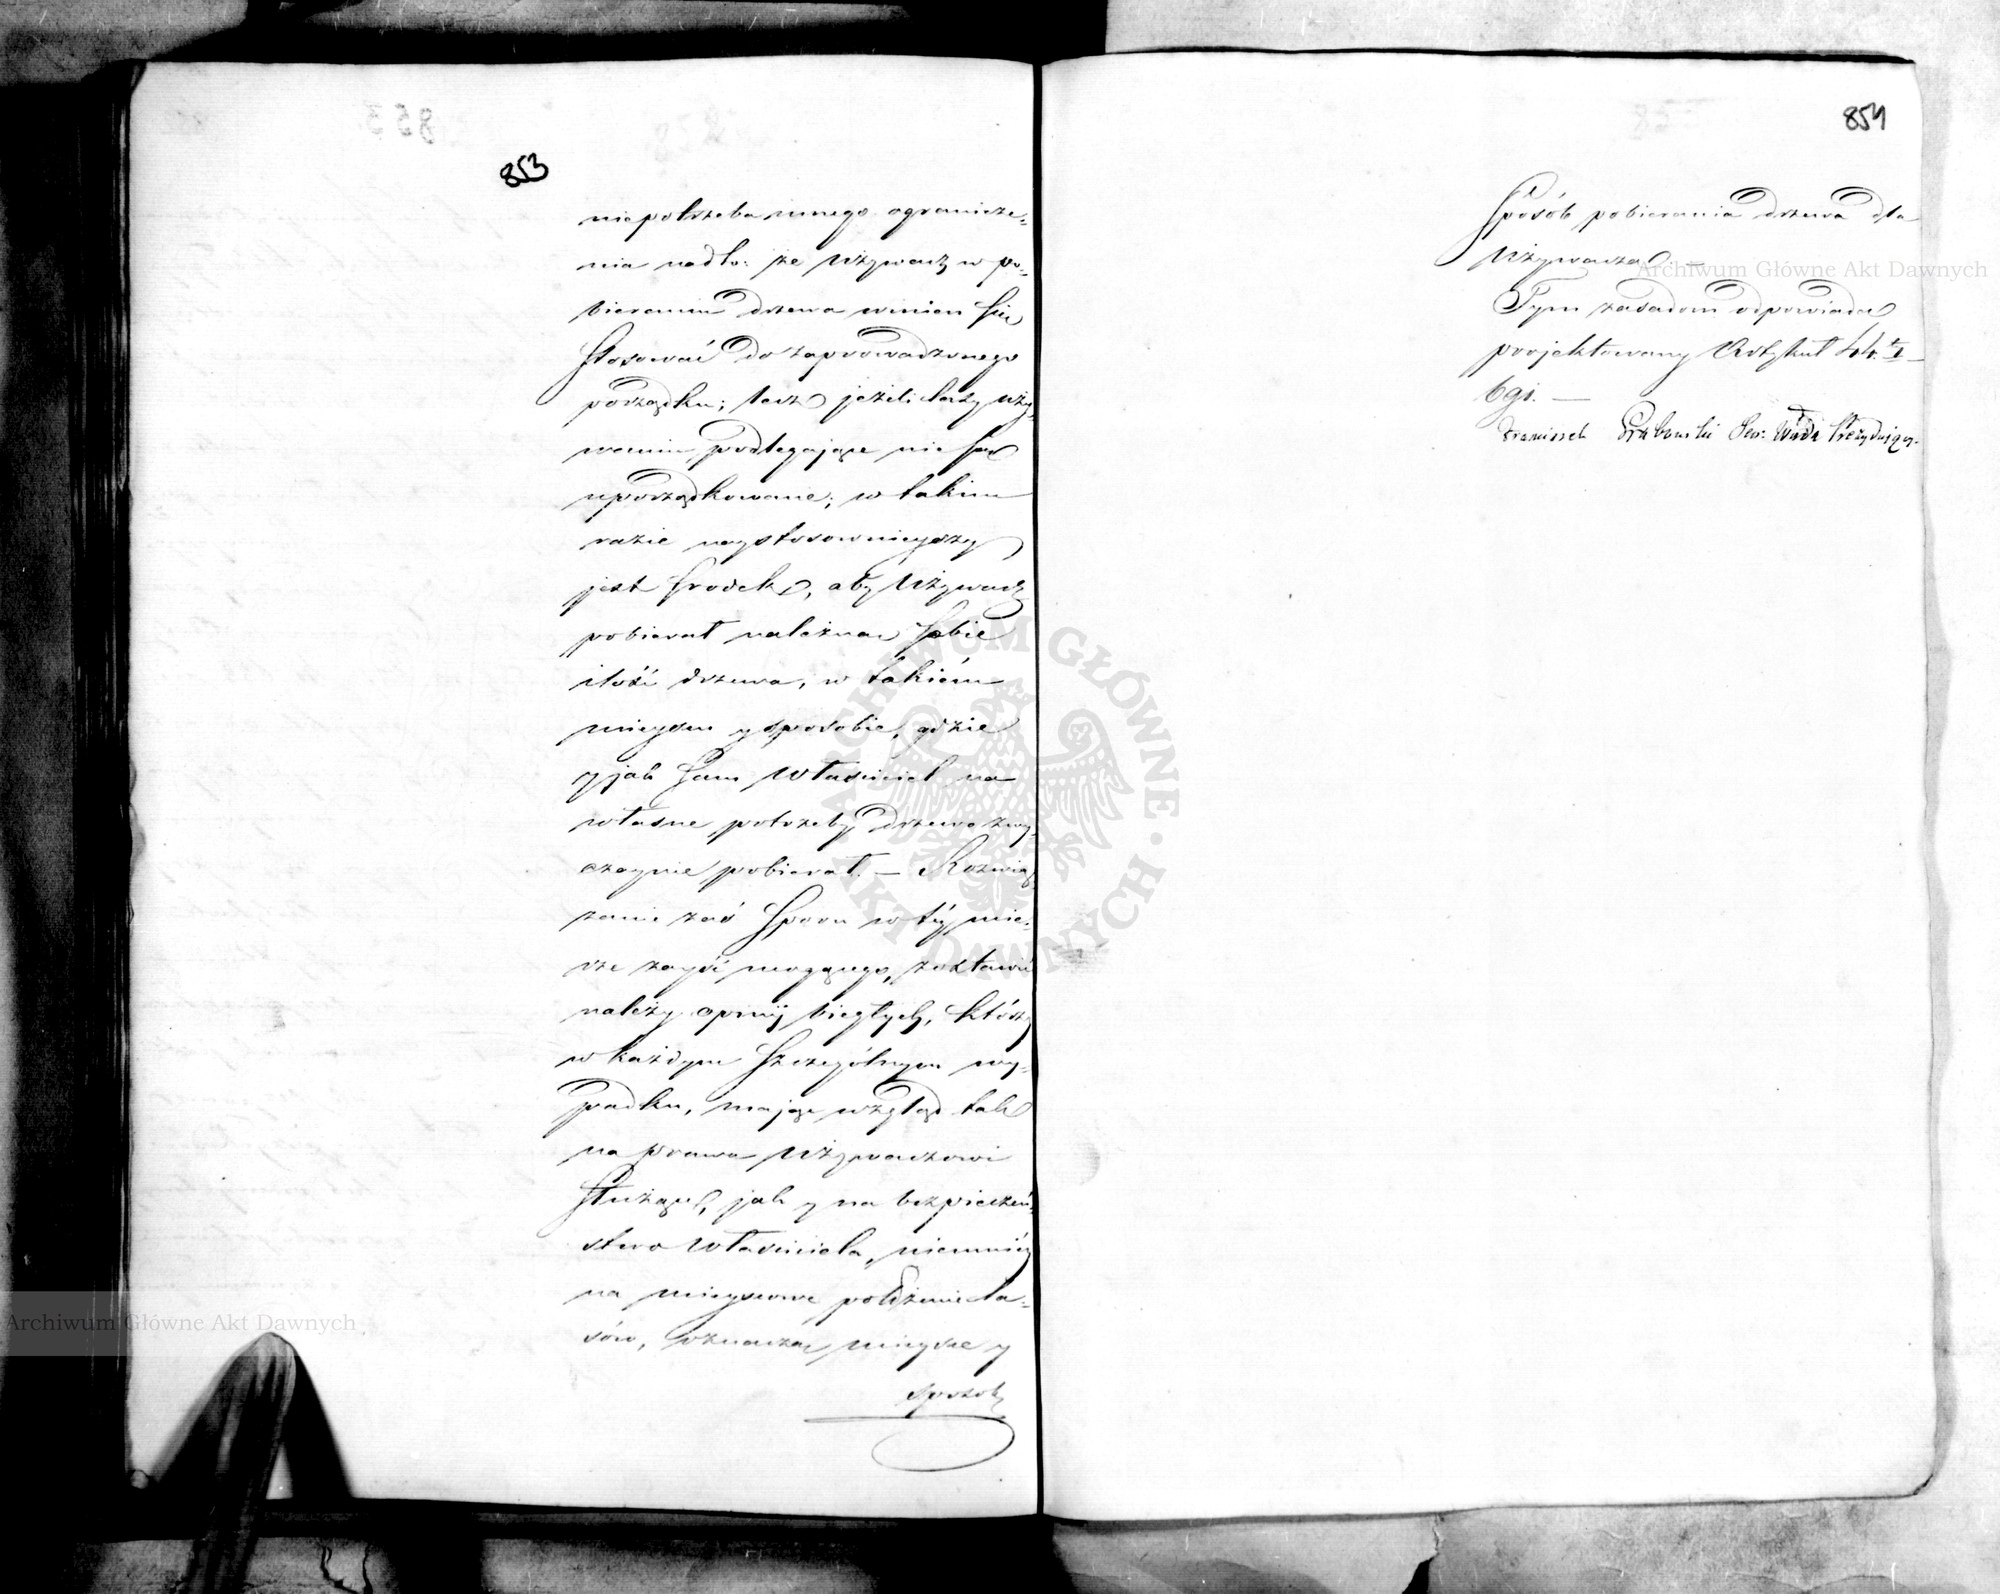 853
niepotrzeba innego ogranicze-
nia nadto: że Używacz w po-
bieraniu drzewa winien się
stosować do zaprowadzonego
porządku; lecz jeżeli lasy uży-
waniu podlegające nie są
uporządkowane; w takim
razie naystosownieyszy
jest środek, aby Używacz
pobierał należną sobie
ilość drzewa, w takiém
mieyscu y sposobie, gdzie
y jak sam Właściciel na
własne potrzeby drzewo zwy-
czaynie pobierał. — Rozwią-
zanie zaś sporu w téy mie-
rze zayść mogącego, zostawić
należy opinij biegłych, którzy
w każdym szczególnym wy-
padku, mając wzgląd tak
na prawa Używaczowi
służące, jak y na bezpieczeń-
stwo Właściciela, niemniéy
na mieyscowe położenie la-
sów, oznaczą mieysce y
sposób
854
Sposób pobierania drzewa dla
Używacza. —
Tym zasadom odpowiada
projektowany Artykuł 44. t.
6gi. —
Franciszek Grabowski Prezydujący.
Archiwum Główne Akt Dawnych
Archiwum Główne Akt Dawnych
ARCHIWUM GŁÓWNE · AKT DAWNYCH ·